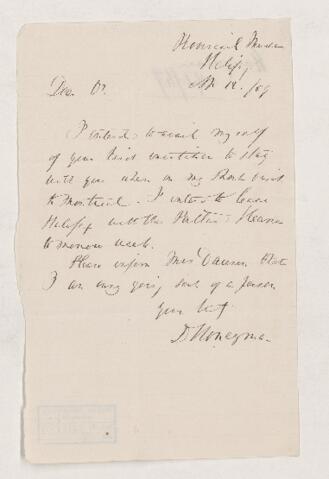 Provincial Museum
Halifax
Dear Dr.
I intend to avail myself
of your kind invitation to stay
with you when on my short visit
to Montreal. I intend to leave
Halifax with the Steamer
to morrow week.
Please inform Mrs Dawson that
I am easy going sort of a person
Yours
D Honeyman